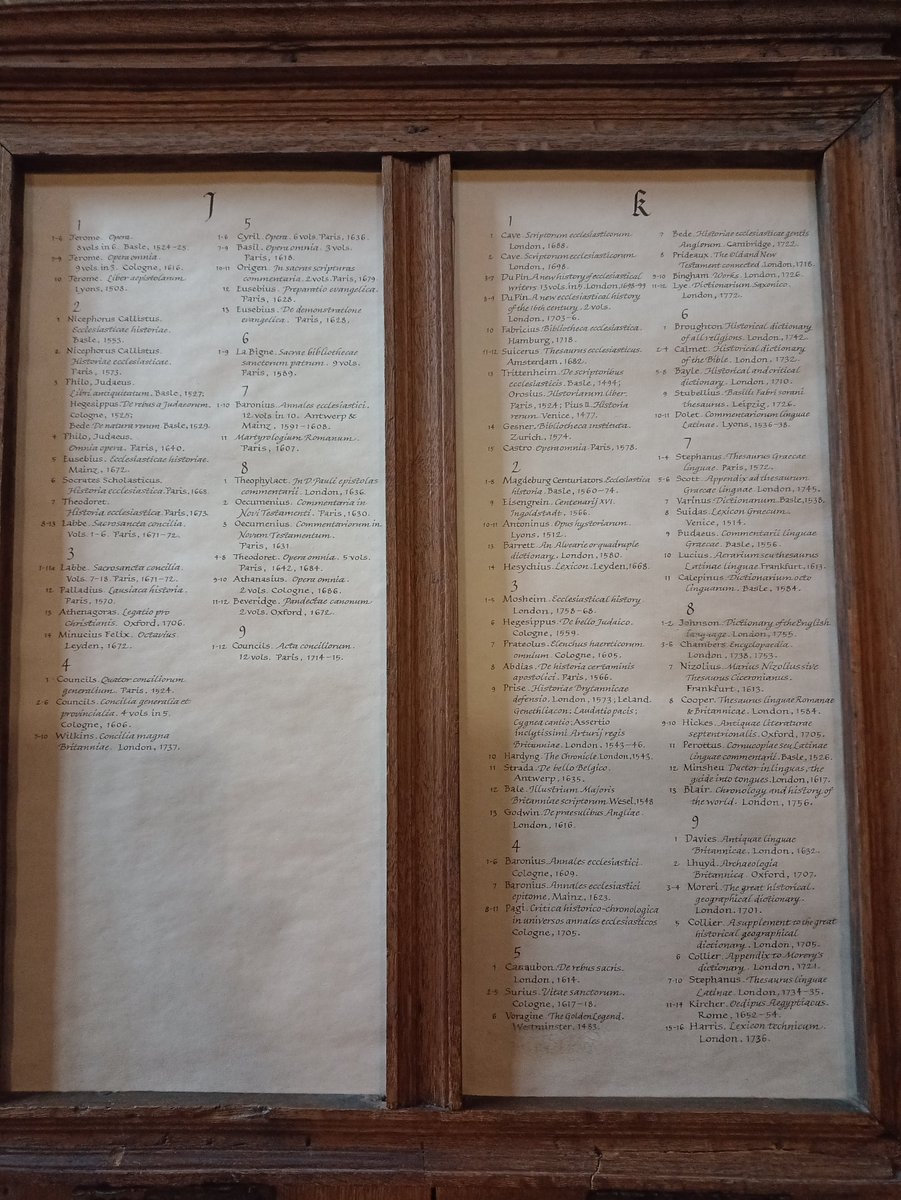 J
1
1-6 Jerome. Opera
8 vols in 6. Basle, 1524-25.
7-9 Jerome. Opera omnia.
9 vols in 3. Cologne, 1616.
10 Jerome. Liber epistolarum.
Lyons, 1508.
2
1 Nicephorus Callistus.
Ecclesiasticae historiae.
Basle, 1553.
2 Nicephorus Callistus.
Historiae ecclesiasticae.
Paris, 1573.
3 Philo, Judaeus.
Libri antiquitatum. Basle, 1527;
Hegesippus. De rebus a Judaeorum.
Cologne, 1525;
Bede. De natura rerum. Basle, 1529.
4 Philo, Judaeus.
Omnia opera. Paris, 1640.
5 Eusebius. Ecclesiasticae historiae.
Mainz, 1672.
6 Socrates Scholasticus.
Historia ecclesiastica. Paris, 1668.
7 Theodoret.
Historia ecclesiastica. Paris, 1673.
8-13 Labbe. Sacrosancta concilia.
Vols. 1-6. Paris, 1671-72.
3
1-11a Labbe. Sacrosancta concilia.
Vols. 7-18. Paris, 1671-72.
12 Palladius. Lausiaca historia.
Paris, 1570.
13 Athenagoras. Legatio pro
Christianis. Oxford, 1706.
14 Minucius Felix. Octavius.
Leyden, 1672.
4
1 Councils. Quatuor conciliorum
generalium. Paris, 1524.
2-6 Councils. Concilia generalia et
provincialia. 4 vols in 5.
Cologne, 1606.
7-10 Wilkins. Concilia magna
Britanniae. London, 1737.
5
1-6 Cyril. Opera. 6 vols. Paris, 1636.
7-9 Basil. Opera omnia. 3 vols.
Paris, 1618.
10-11 Origen. In sacras scripturas
commentaria. 2 vols. Paris, 1679.
12 Eusebius. Preparatio evangelica.
Paris, 1628.
13 Eusebius. De demonstratione
evangelica. Paris, 1628.
6
1-9 La Bigne. Sacrae bibliothecae
sanctorum patrum. 9 vols.
Paris, 1589.
7
1-10 Baronius. Annales ecclesiastici.
12 vols in 10. Antwerp &
Mainz, 1591-1608.
11 Martyrologium Romanum.
Paris, 1607.
8
1 Theophylact. In D. Pauli epistolas
commentarii. London, 1636.
2 Oecumenius. Commentaria in
Novi Testamenti. Paris, 1630.
3 Oecumenius. Commentariorum in
Novum Testamentum.
Paris, 1631
4-8 Theodoret. Opera omnia. 5 vols.
Paris, 1642, 1684.
9-10 Athanasius. Opera omnia.
2 vols. Cologne, 1686.
11-12 Beveridge. Pandectae canonum.
2 vols. Oxford, 1672.
9
1-12 Councils. Acta conciliorum.
12 vols. Paris, 1714-15.
K
1
1 Cave. Scriptorum ecclesiasticorum.
London, 1688.
2 Cave. Scriptorum ecclesiasticorum.
London, 1698.
3-7 Du Pin. A new history of ecclesiastical
writers. 13 vols. in 5. London, 1698-99
8-9 Du Pin. A new ecclesiastical history
of the 16th century. 2 vols.
London, 1703-6.
10 Fabricius. Bibliotheca ecclesiastica.
Hamburg, 1718.
11-12 Suicerus. Thesaurus ecclesiasticus.
Amsterdam, 1682.
13 Trittenheim. De scriptoribus
ecclesiasticis. Basle, 1494;
Orosius. Historiarum liber.
Paris, 1524; Pius II. Historia
rerum. Venice, 1477.
14 Gesner. Bibliotheca instituta.
Zurich, 1574.
15 Castro. Opera omnia. Paris, 1578.
2
1-8 Magdeburg Centuriators. Ecclesiastica
historia. Basle, 1560-74.
9 Eisengrein. Centenarij XVI.
Ingoldstadt, 1566.
10-11 Antoninus. Opus hystoriarum.
Lyons, 1512.
13 Barrett. An Alvearie or quadruple
dictionary. London, 1580.
14 Hesychius. Lexicon. Leyden, 1668.
3
1-5 Mosheim. Ecclesiastical history.
London, 1758-68.
6 Hegesippus. De bello Judaico.
Cologne, 1559.
7 Prateolus. Elenchus haereticorum
omnium. Cologne, 1605.
8 Abdias. De historia certaminis
apostolici. Paris, 1566.
9 Prise. Historiae Brytannicae
defensio. London, 1573; Leland.
Genethliacon; Laudatio pacis;
Cygnea cantio; Assertio
inclytissimi Arturij regis
Britanniae. London, 1543-46.
10 Hardyng. The Chronicle. London, 1543.
11 Strada. De bello Belgico.
Antwerp, 1635.
12 Bale. Illustrium Majoris
Britanniae scriptorum. Wesel, 1548
13 Godwin. De praesulibus Angliae.
London, 1616.
4
1-6 Baronius. Annales ecclesiastici.
Cologne, 1609.
7 Baronius. Annales ecclesiastici
epitome. Mainz, 1623.
8-11 Pagi. Critica historico-chronologica
in universos annales ecclesiasticos
Cologne, 1705.
5
1 Casaubon. De rebus sacris.
London, 1614.
2-5 Surius. Vitae sanctorum.
Cologne, 1617-18.
6 Voragine. The Golden Legend.
Westminster, 1483.
7 Bede. Historiae ecclesiasticae gentis
Anglorum. Cambridge, 1722.
8 Prideaux. The Old and New
Testament connected. London, 1718.
9-10 Bingham. Works. London, 1726.
11-12 Lye. Dictionarium Saxonico.
London, 1772.
6
1 Broughton. Historical dictionary
of all religions. London, 1742.
2-4 Calmet. Historical dictionary
of the Bible. London, 1732.
5-8 Bayle. Historical and critical
dictionary. London, 1710.
9 Stubellius. Basilii Fabri sorani
thesaurus. Leipzig, 1726.
10-11 Dolet. Commentariorum linguae
Latinae. Lyons, 1536-38.
7
1-4 Stephanus. Thesaurus Graecae
linguae. Paris, 1572.
5-6 Scott. Appendix ad thesaurum
Graecae linguae. London, 1745.
7 Varinus. Dictionarium. Basle, 1538.
8 Suidas. Lexicon Graecum.
Venice, 1514.
9 Budaeus. Commentarii linguae
Graecae. Basle, 1556.
10 Lucius. Aerarium seu thesaurus
Latinae linguae. Frankfurt, 1613.
11 Calepinus. Dictionarium octo
linguarum. Basle, 1584.
8
1-2 Johnson. Dictionary of the English
language. London, 1755.
3-6 Chambers. Encyclopaedia.
London, 1738, 1753.
7 Nizolius. Marius Nizolius sive
Thesaurus Ciceronianus.
Frankfurt, 1613.
8 Cooper. Thesaurus linguae Romanae
& Britannicae. London, 1584.
9-10 Hickes. Antiquae literaturae
septentrionalis. Oxford, 1705.
11 Perottus. Cornucopiae seu Latinae
linguae commentarii. Basle, 1526.
12 Minsheu. Ductor in linguas, the
guide into tongues. London, 1617.
13 Blair. Chronology and history of
the world. London, 1756.
9
1 Davies. Antiquae linguae
Britannicae. London, 1632.
2 Lhuyd. Archaeologia
Britannica. Oxford, 1707.
3-4 Moreri. The great historical
geographical dictionary.
London, 1701.
5 Collier. A supplement to the great
historical geographical
dictionary. London, 1705.
6 Collier. Appendix to Morery's
dictionary. London, 1721.
7-10 Stephanus. Thesaurus linguae
Latinae. London, 1734-35.
11-14 Kircher. Oedipus Aegyptiacus.
Rome, 1652-54.
15-16 Harris. Lexicon technicum.
London, 1736.